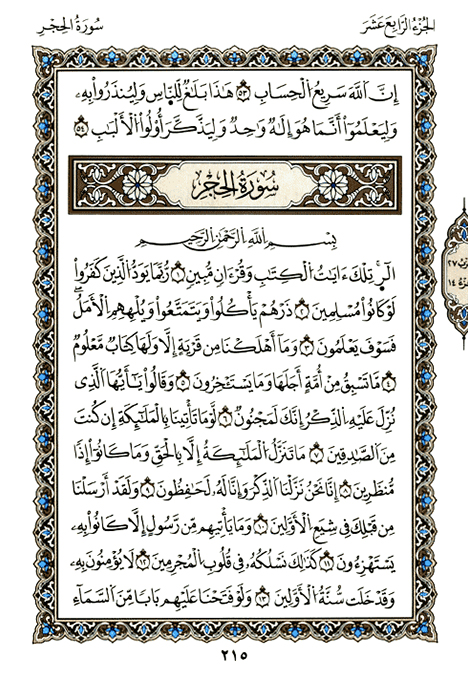 الجُزْءُ الرَّابِعَ عَشَرَ
سُورَةُ الحِجْرِ
إِنَّ ٱللَّهَ سَرِيعُ ٱلْحِسَابِ ٥٣ هَٰذَا بَلَٰغٌ لِّلنَّاسِ وَلِيُنذَرُوا۟ بِهِۦ
وَلِيَعْلَمُوٓا۟ أَنَّمَا هُوَ إِلَٰهٌ وَٰحِدٌ وَلِيَذَّكَّرَ أُو۟لُوا۟ ٱلْأَلْبَٰبِ ٥٤
سُورَةُ الحِجْرِ
بِسْمِ ٱللَّهِ ٱلرَّحْمَٰنِ ٱلرَّحِيمِ
الٓر تِلْكَ ءَايَٰتُ ٱلْكِتَٰبِ وَقُرْءَانٍ مُّبِينٍ ١ رُّبَمَا يَوَدُّ ٱلَّذِينَ كَفَرُوا۟
لَوْ كَانُوا۟ مُسْلِمِينَ ٢ ذَرْهُمْ يَأْكُلُوا۟ وَيَتَمَتَّعُوا۟ وَيُلْهِهِمِ ٱلْأَمَلُ
فَسَوْفَ يَعْلَمُونَ ٣ وَمَآ أَهْلَكْنَا مِن قَرْيَةٍ إِلَّا وَلَهَا كِتَابٌ مَّعْلُومٌ
٤ مَّا تَسْبِقُ مِنْ أُمَّةٍ أَجَلَهَا وَمَا يَسْتَـْٔخِرُونَ ٥ وَقَالُوا۟ يَٰٓأَيُّهَا ٱلَّذِى
نُزِّلَ عَلَيْهِ ٱلذِّكْرُ إِنَّكَ لَمَجْنُونٌ ٦ لَّوْ مَا تَأْتِينَا بِٱلْمَلَٰٓئِكَةِ إِن كُنتَ
مِنَ ٱلصَّٰدِقِينَ ٧ مَا تَنَزَّلُ ٱلْمَلَٰٓئِكَةُ إِلَّا بِٱلْحَقِّ وَمَا كَانُوٓا۟ إِذًا
مُّنظَرِينَ ٨ إِنَّا نَحْنُ نَزَّلْنَا ٱلذِّكْرَ وَإِنَّا لَهُۥ لَحَٰفِظُونَ ٩ وَلَقَدْ أَرْسَلْنَا
مِن قَبْلِكَ فِى شِيَعِ ٱلْأَوَّلِينَ ١٠ وَمَا يَأْتِيهِم مِّن رَّسُولٍ إِلَّا كَانُوا۟ بِهِۦ
يَسْتَهْزِءُونَ ١١ كَذَٰلِكَ نَسْلُكُهُۥ فِى قُلُوبِ ٱلْمُجْرِمِينَ ١٢ لَا يُؤْمِنُونَ بِهِۦ
وَقَدْ خَلَتْ سُنَّةُ ٱلْأَوَّلِينَ ١٣ وَلَوْ فَتَحْنَا عَلَيْهِم بَابًا مِّنَ ٱلسَّمَآءِ
٢١٥